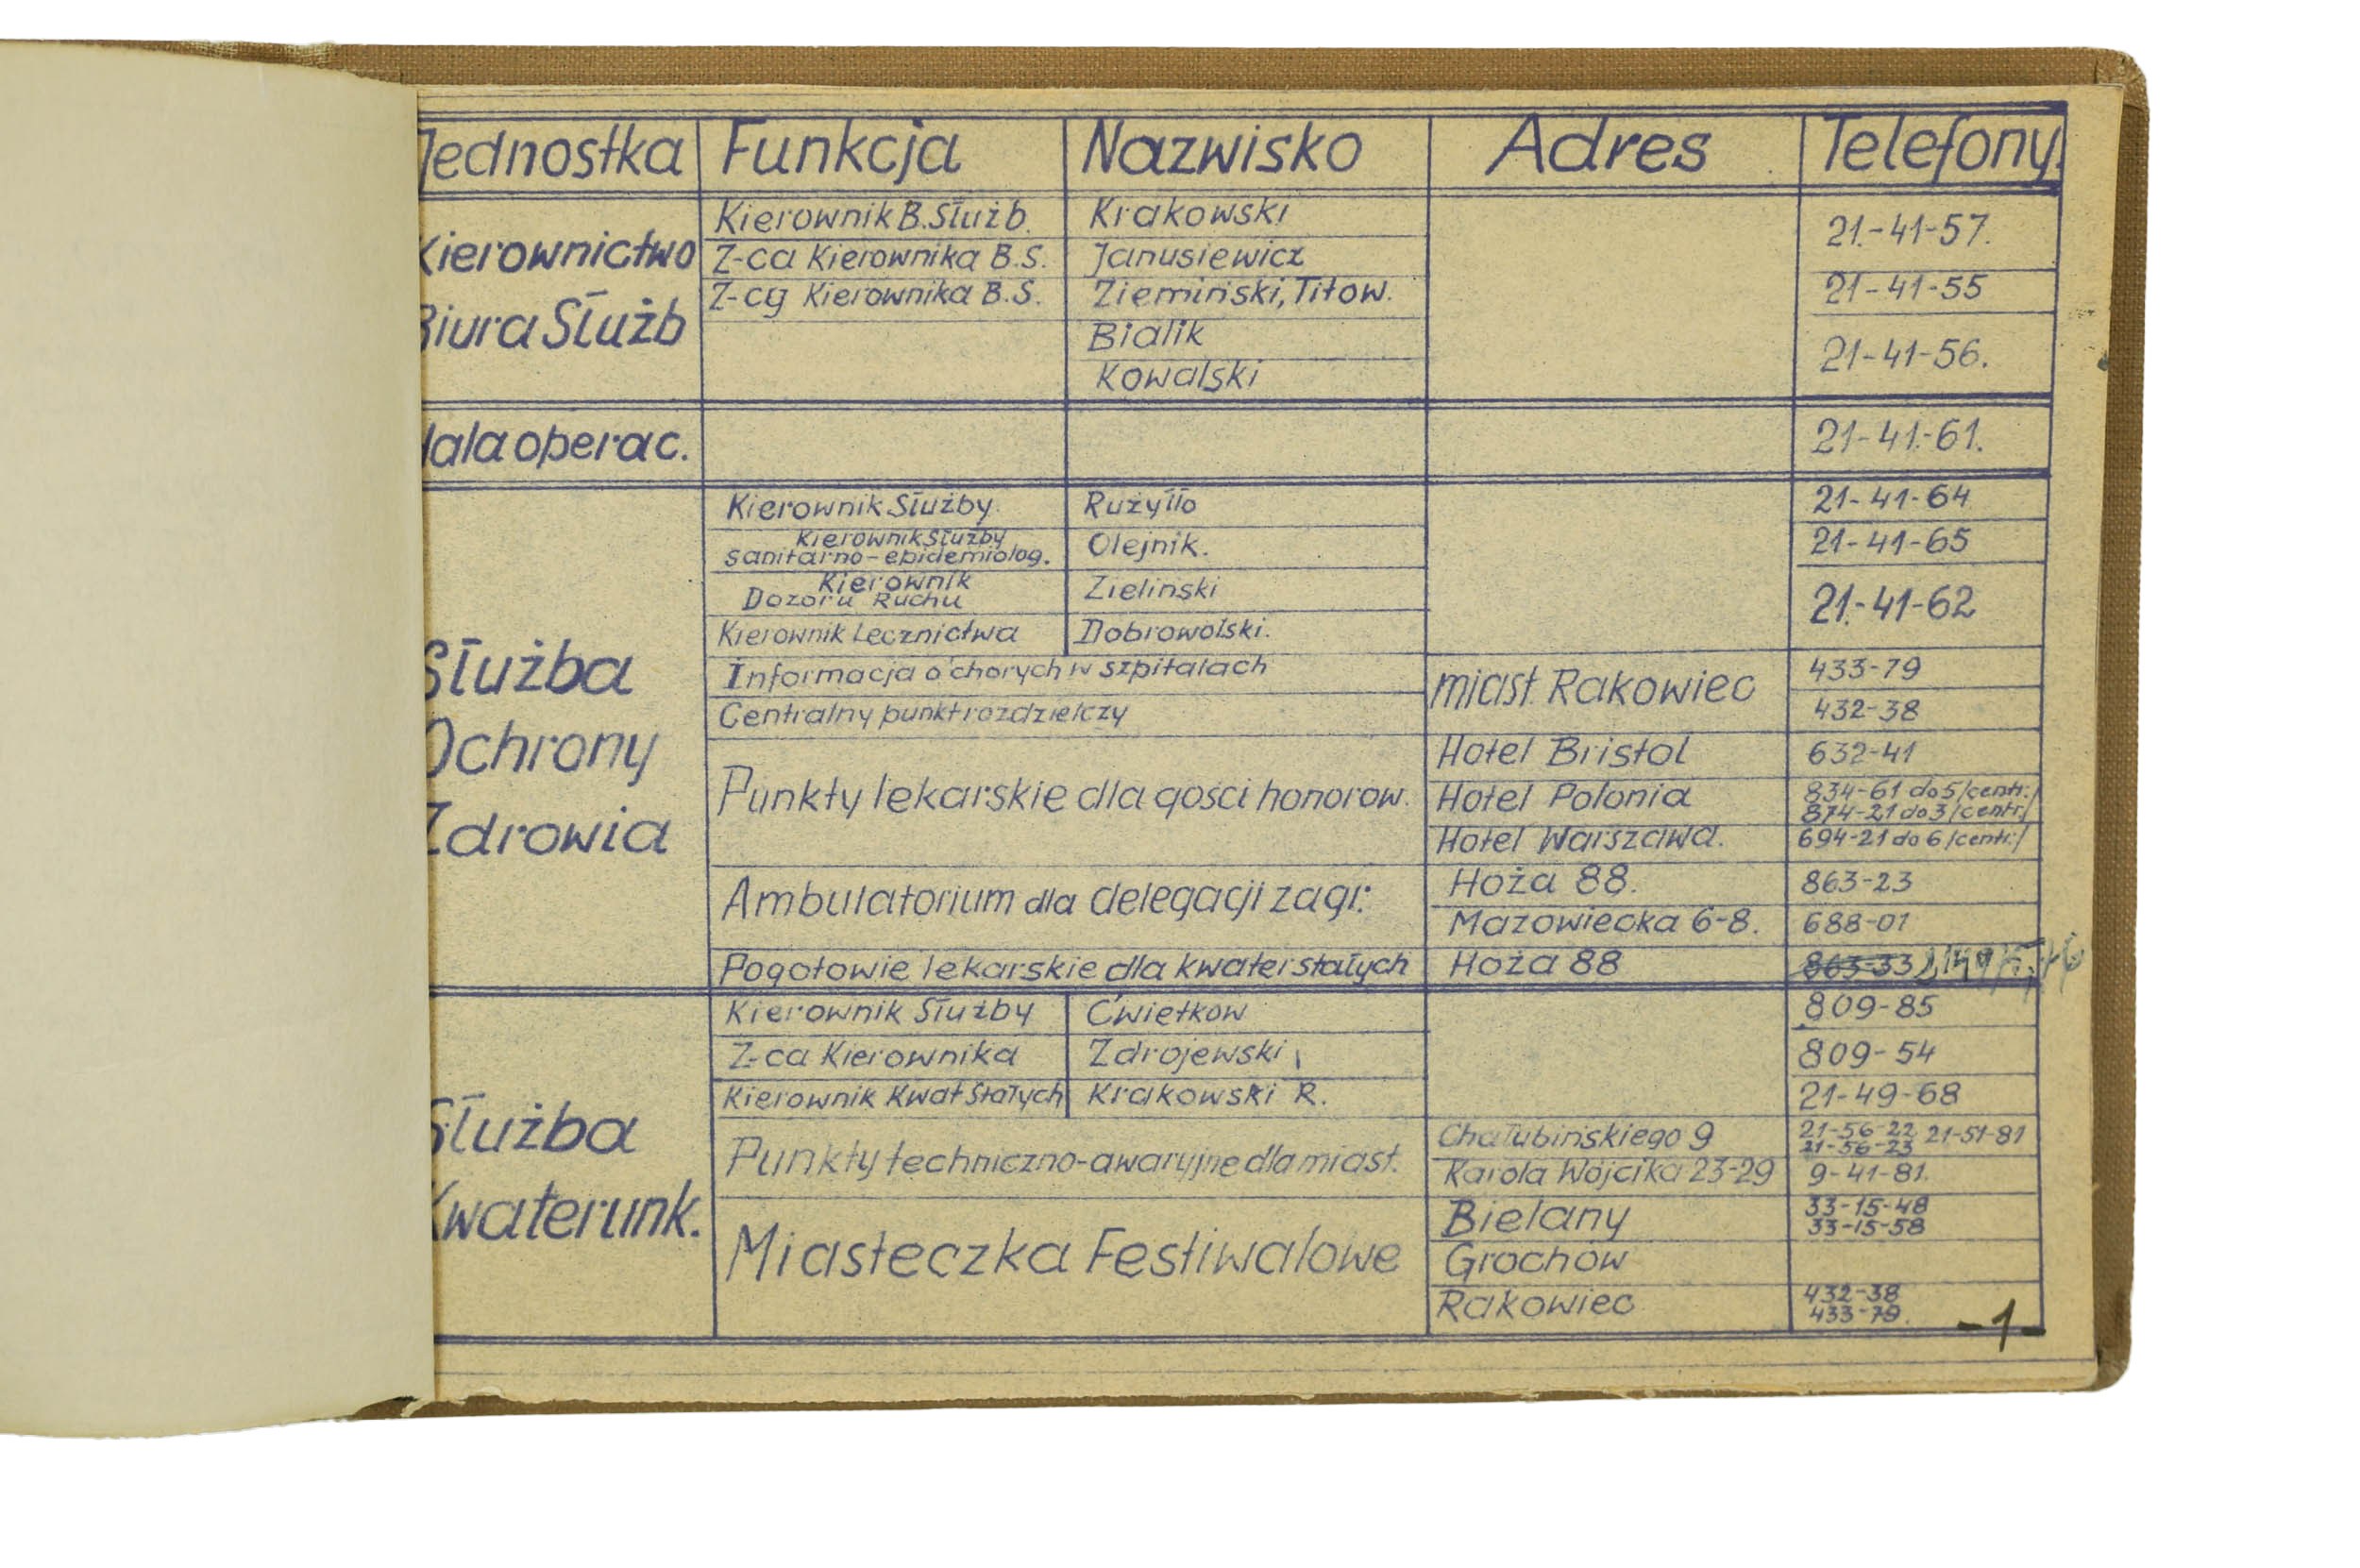 Jednostka Funkcja Nazwisko Adres Telefony.
Kierownictwo
Biura Służb
Kierownik B.Służb. Krakowski 21.-41-57.
Z-ca Kierownika B.S. Janusiewicz
Z-cy Kierownika B.S. Ziemiński, Titow. 21-41-55
Bialik 21-41-56.
Kowalski
Hala operac. 21-41.-61.
Służba
Ochrony
Zdrowia
Kierownik Służby. Rużyłło 21-41-64
Kierownik Służby
sanitarno-epidemiolog. Olejnik. 21-41-65
Kierownik
Dozoru Ruchu Zielinski 21.-41-62
Kierownik Lecznictwa Dobrowolski.
Informacja o chorych w szpitalach miast. Rakowiec 433-79
Centralny punkt rozdzielczy 432-38
Punkty lekarskie dla gości honorow. Hotel Bristol 632-41
Hotel Polonia 834-61 do 5/centr./
874-21 do 3/centr./
Hotel Warszawa. 694-21 do 6/centr./
Ambulatorium dla delegacji zagr. Hoża 88. 863-23
Mazowiecka 6-8. 688-01
Pogotowie lekarskie dla kwater stałych Hoża 88 863-33
Służba
Kwaterunk.
Kierownik Służby Ćwietkow 809-85
Z-ca Kierownika Zdrojewski 809-54
Kierownik Kwat Stałych Krakowski R. 21-49-68
Punkty techniczno-awaryjne dla miast. Chałubińskiego 9 21-56-22 21-51-81
21-56-23
Karola Wójcika 23-29 9-41-81.
Miasteczka Festiwalowe Bielany 33-15-48
33-15-58
Grochów
Rakowiec 432-38
433-79.
-1-